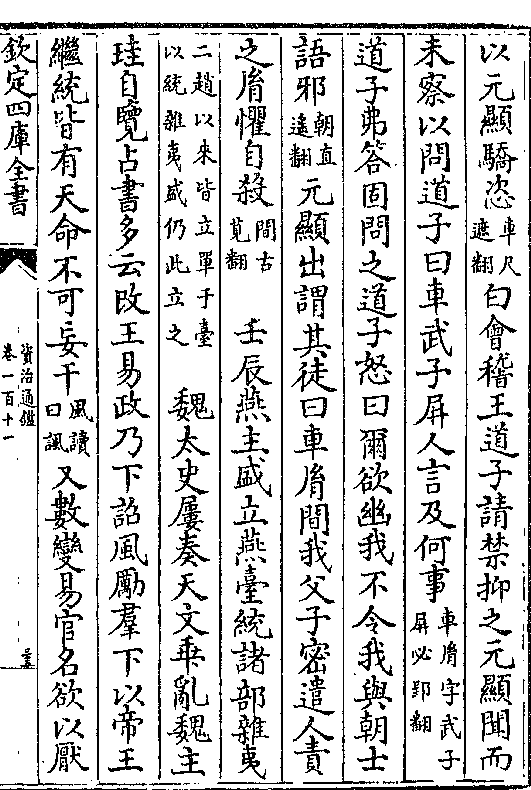 以元顯驕恣車尺遮翻白會稽王道子請禁抑之元顯聞而
未察以問道子曰車武子屏人言及何事車胤字武子屏必郢翻
道子弗答固問之道子怒曰爾欲幽我不令我與朝士
語邪朝直遙翻元顯出謂其徒曰車胤間我父子密遣人責
之胤懼自殺間古莧翻壬辰燕主盛立燕臺統諸部雜夷
二趙以來皆立單于臺以統雜夷盛仍此立之魏太史屢奏天文乖亂魏主
珪自覽占書多云改王易政乃下詔風勵羣下以帝王
繼統皆有天命不可妄干風讀曰諷又數變易官名欲以厭
欽定四庫全書
資治通鑑
卷一百十一